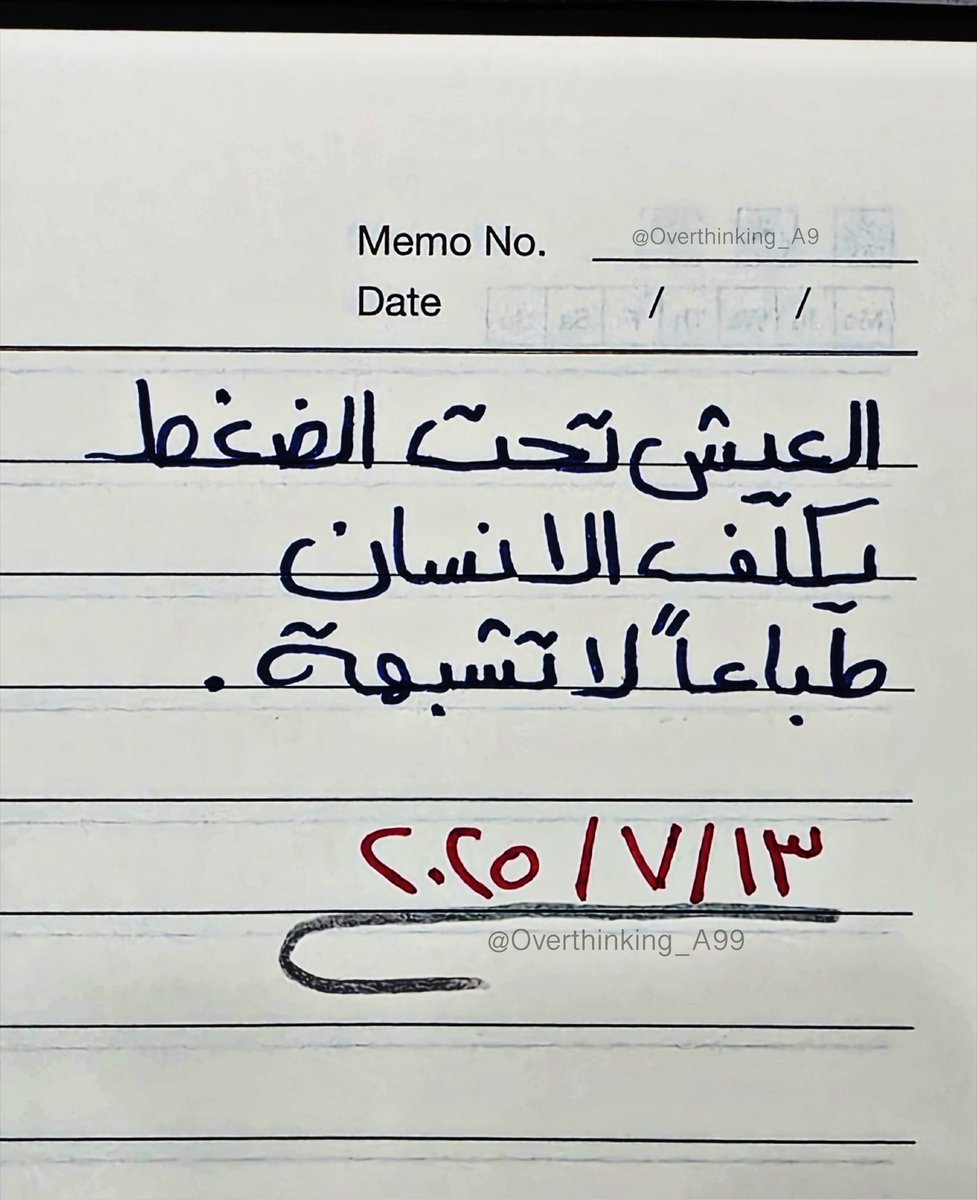 Memo No. @Overthinking_A9
Date / /
العيش تحت الضغط
يكلّف الانسان
طباعاً لا تشبهة .
٢٠٢٥/٧/١٣
@Overthinking_A99